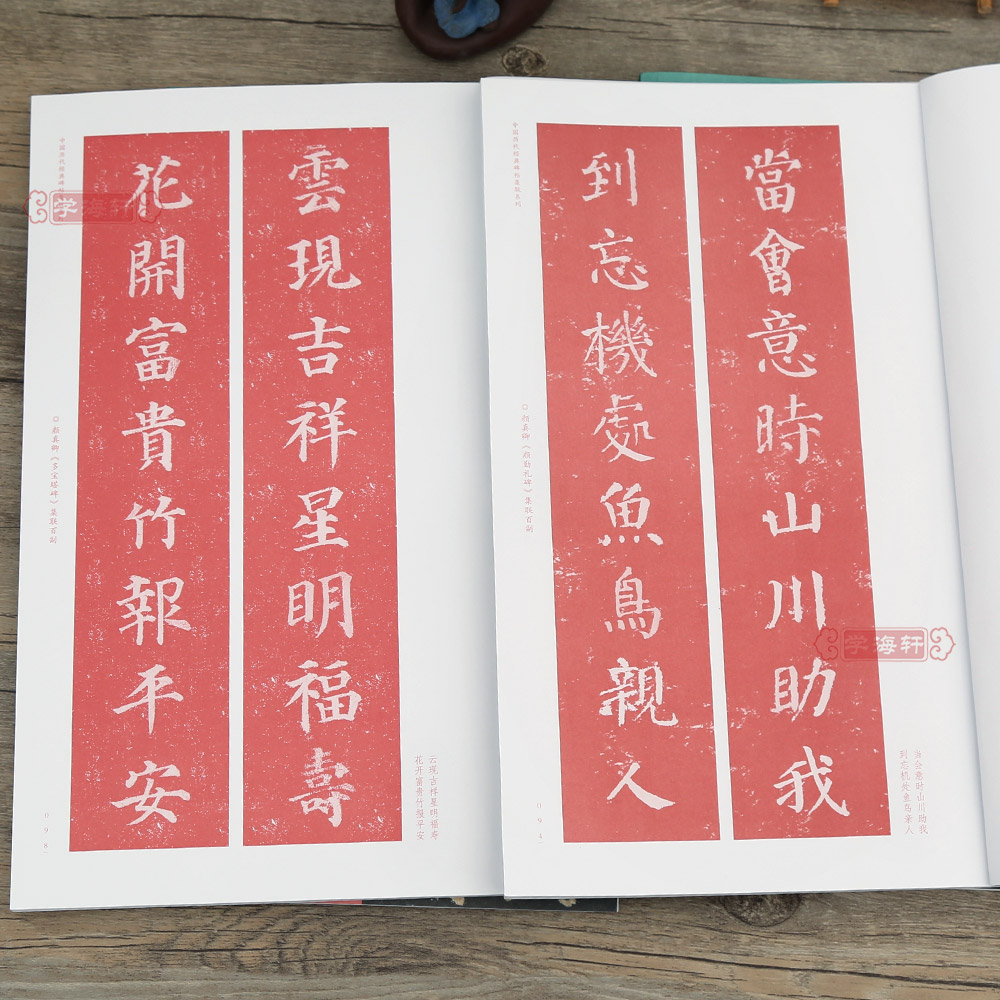 雲現吉祥星明福壽
花開富貴竹報平安
云现吉祥星明福寿
花开富贵竹报平安
◎颜真卿《多宝塔碑》集联百副
098
学海轩
當會意時山川助我
到忘機處魚鳥親人
当会意时山川助我
到忘机处鱼鸟亲人
中国历代经典碑帖集联系列
◎颜真卿《颜勤礼碑》集联百副
学海轩